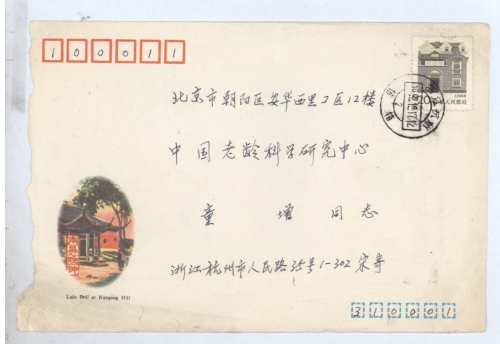 100011
北京市朝阳区安华西里2区12楼
中国老龄科学研究中心
童增同志
浙江杭州市人民路35号1-302宋寄
Late Bell at Nanping Hill
310001
20
中国人民邮政